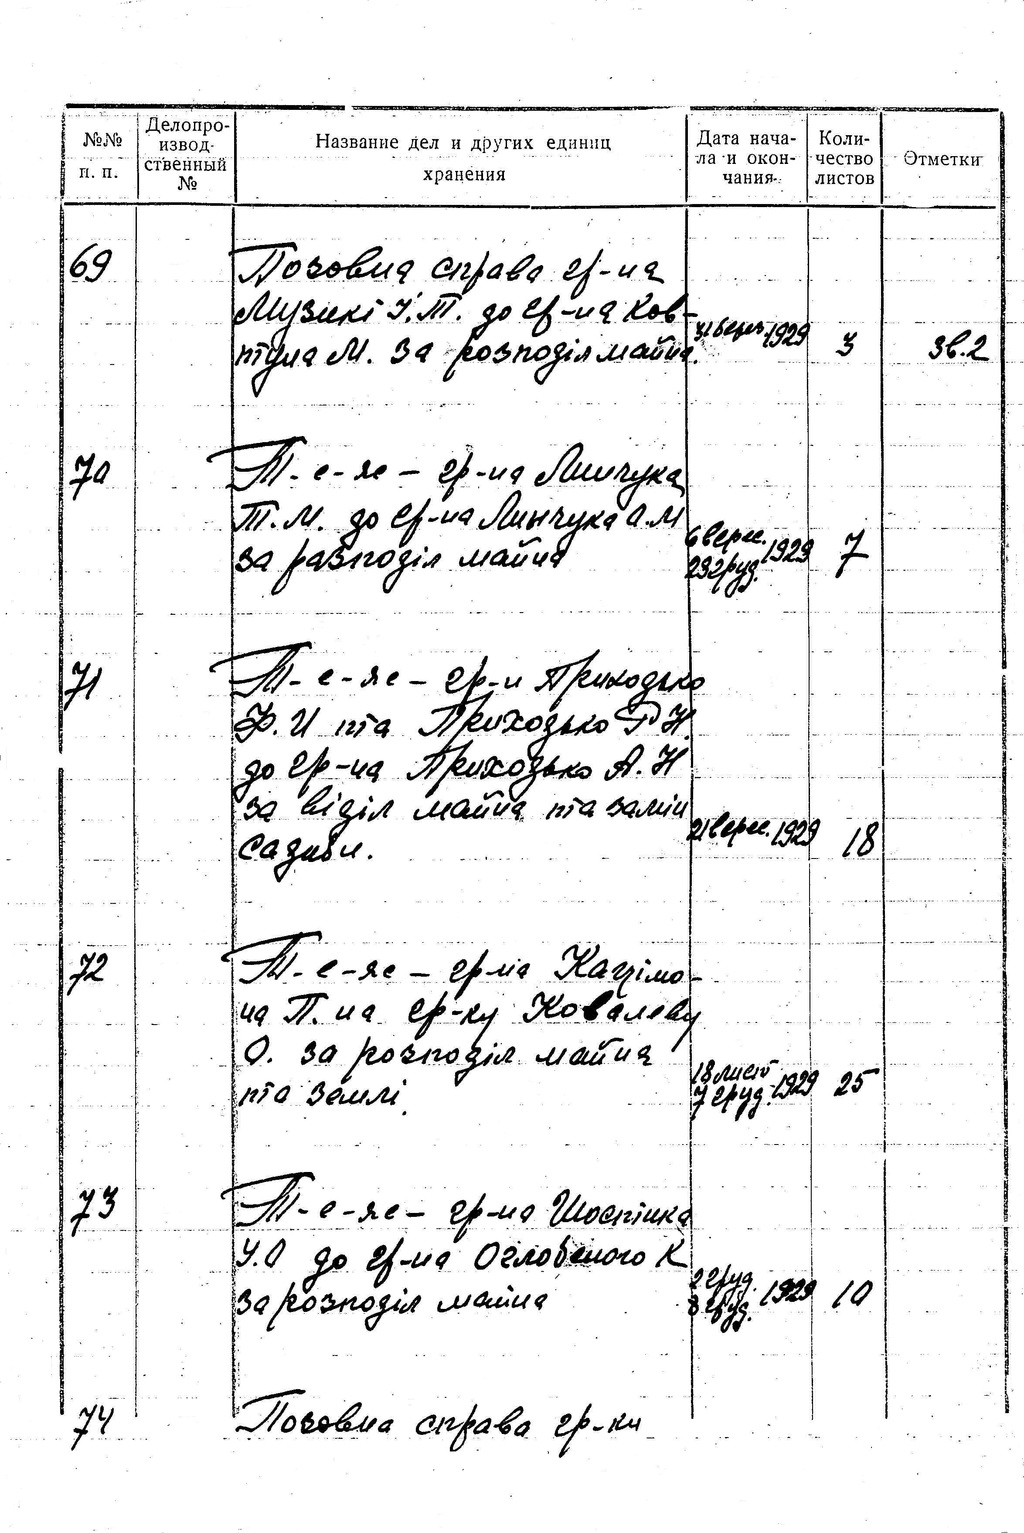 №№ п. п.
Делопро-
извод-
ственный
№
Название дел и других единиц
хранения
Дата нача-
ла и окон-
чания
Коли-
чество
листов
Отметки
69
Позовна справа гр-на
Музикі У.Т. до гр-на Ков-
птула М. за розподіл майна.
31 берез. 1929
3
Зв.2
70
Т-е-яе- гр-на Линчука
Т.М. до гр-на Линчука О.М
за разподіл майна
6 верес.
23 груд. 1929
7
71
Т-е-яе- гр-н Приходько
Ф.И та Приходько Р Н.
до гр-на Приходько А.Н
за віділ майна та замін
садиби.
21 верес. 1929
18
72
Т-е-яе- гр-на
на П. на гр-ку Ковалеву
О. за розподіл майна
та землі.
18 лист
7 груд. 1929
25
73
Т-е-яе- гр-на Шостінка
У.О до гр-на Оглобеного К
за розподіл майна
2 груд.
8 груд. 1929
10
74
Позовна справа гр-ки